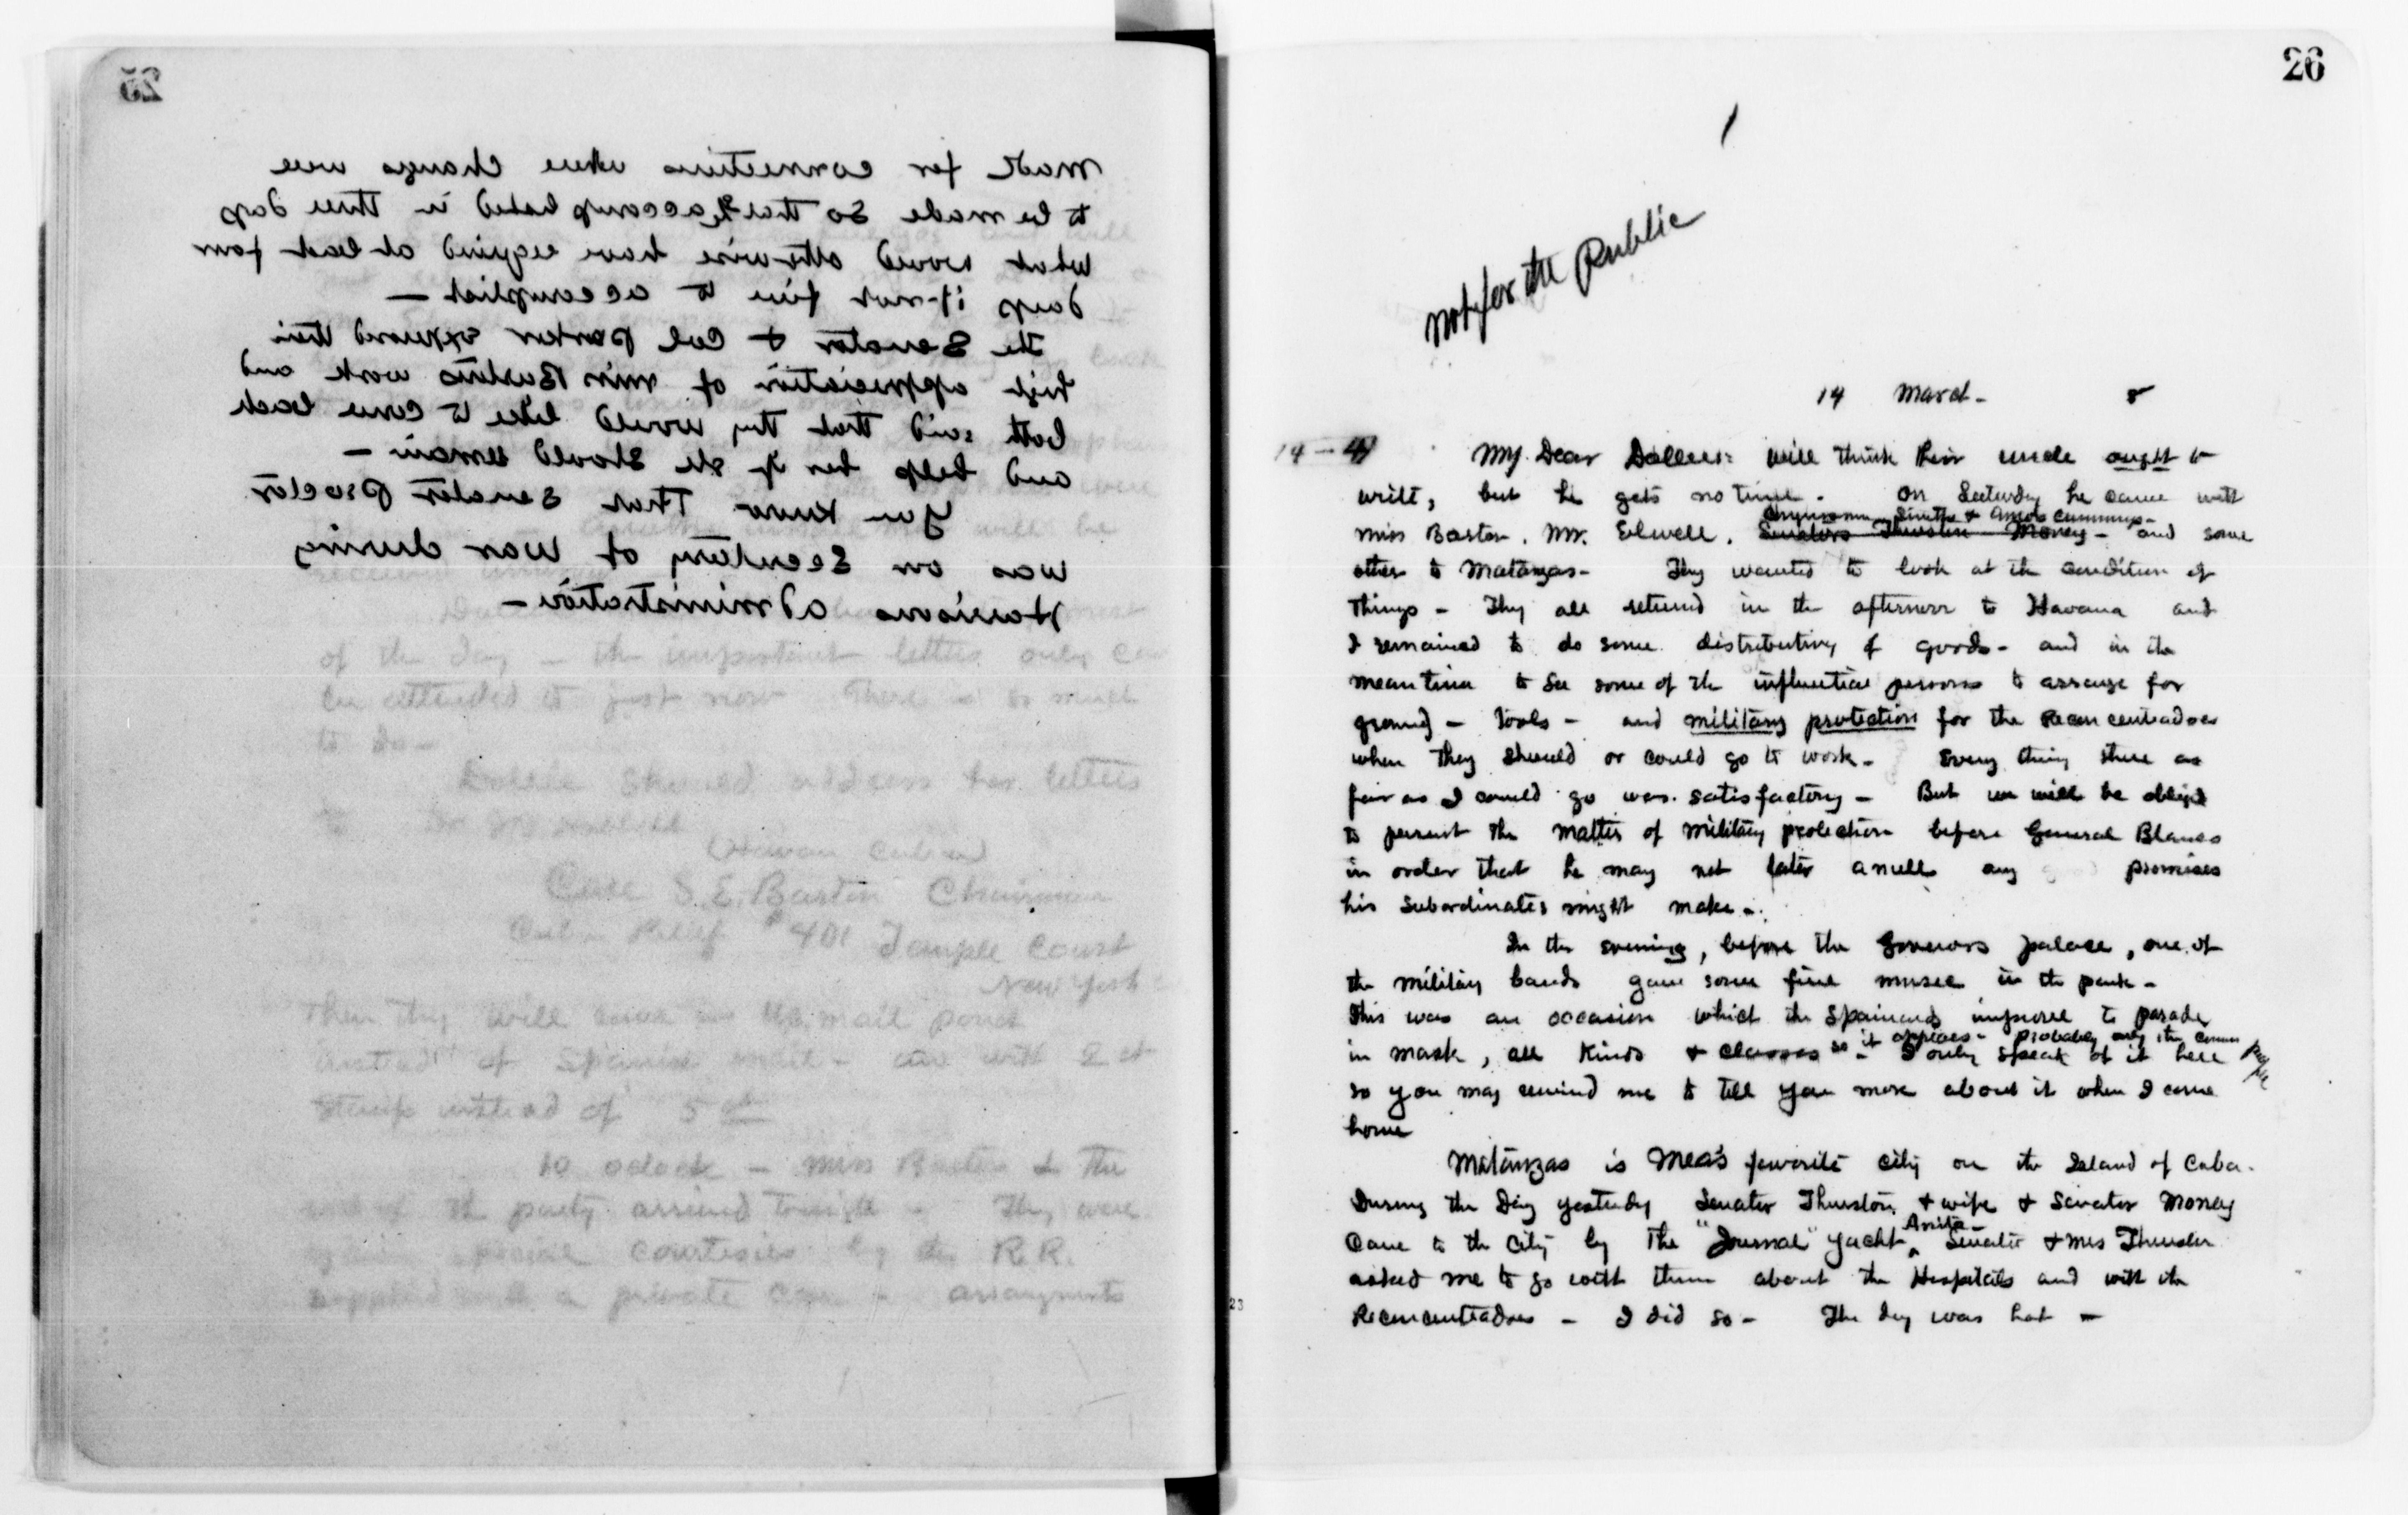 25
made for connections where changes were
to be made so that accomplished in three days
what would otherwise have required at least four
days if not five to accomplish —
The Senator & Col Parker expressed their
high appreciation of Miss Bartons work and
both said that they would like to come back
and help her if she should remain —
You know that Senator Proctor
was on Secretary of War during
Harrisons administration —
of the day — the important letters only can
be attended to just now There is so much
to do —
Dollie should address her letters
to Dr
(Havana Cuba)
Care S. E. Barton Chairman
Cuban Relief #401 Temple Court
New York
Then they will come in US mail pouch
instead of Spanish mail — and with 2 ct
stamp instead of 5 ct
10 oclock — Miss Barton & the
rest of the party arrived tonight — They were
special courtesies by the R.R.
supplied with a private car — arrangements
26
Not for the Public
14 March — 8
14 — My Dear Dollies: will think their uncle ought to
write, but he gets no time — On Saturday he came with
Smith & Amos Cummings —
Miss Barton, Mr. Elwell, Senators Thurston Money — and some
others to Matanzas — They wanted to look at the condition of
things — They all returned in the afternoon to Havana and
I remained to do some distributing of goods — and in the
meantime to see some of the influential persons to arrange for
ground — tools — and military protection for the Reconcentrados
when they should or could go to work — Every thing there as
far as I could go was satisfactory — But we will be obliged
to present the matter of military protection before General Blanco
in order that he may not later annull any promises
his subordinates might make —
In the evening, before the Governors palace, one of
the military bands gave some fine music in the park —
This was an occasion which the Spaniards improve to parade
so it appears — probably only the common people
in mask, all kinds & classes — I only speak of it here
so you may remind me to tell you more about it when I come
home
Matanzas is Mea's favorite city on the Island of Cuba.
During the day yesterday Senator Thurston & wife & Senator Money
Anita —
came to the city by the "Journal" yacht, Senator & Mrs Thurston
asked me to go with them about the Hospitals and with the
Reconcentrados — I did so — The day was hot —
23